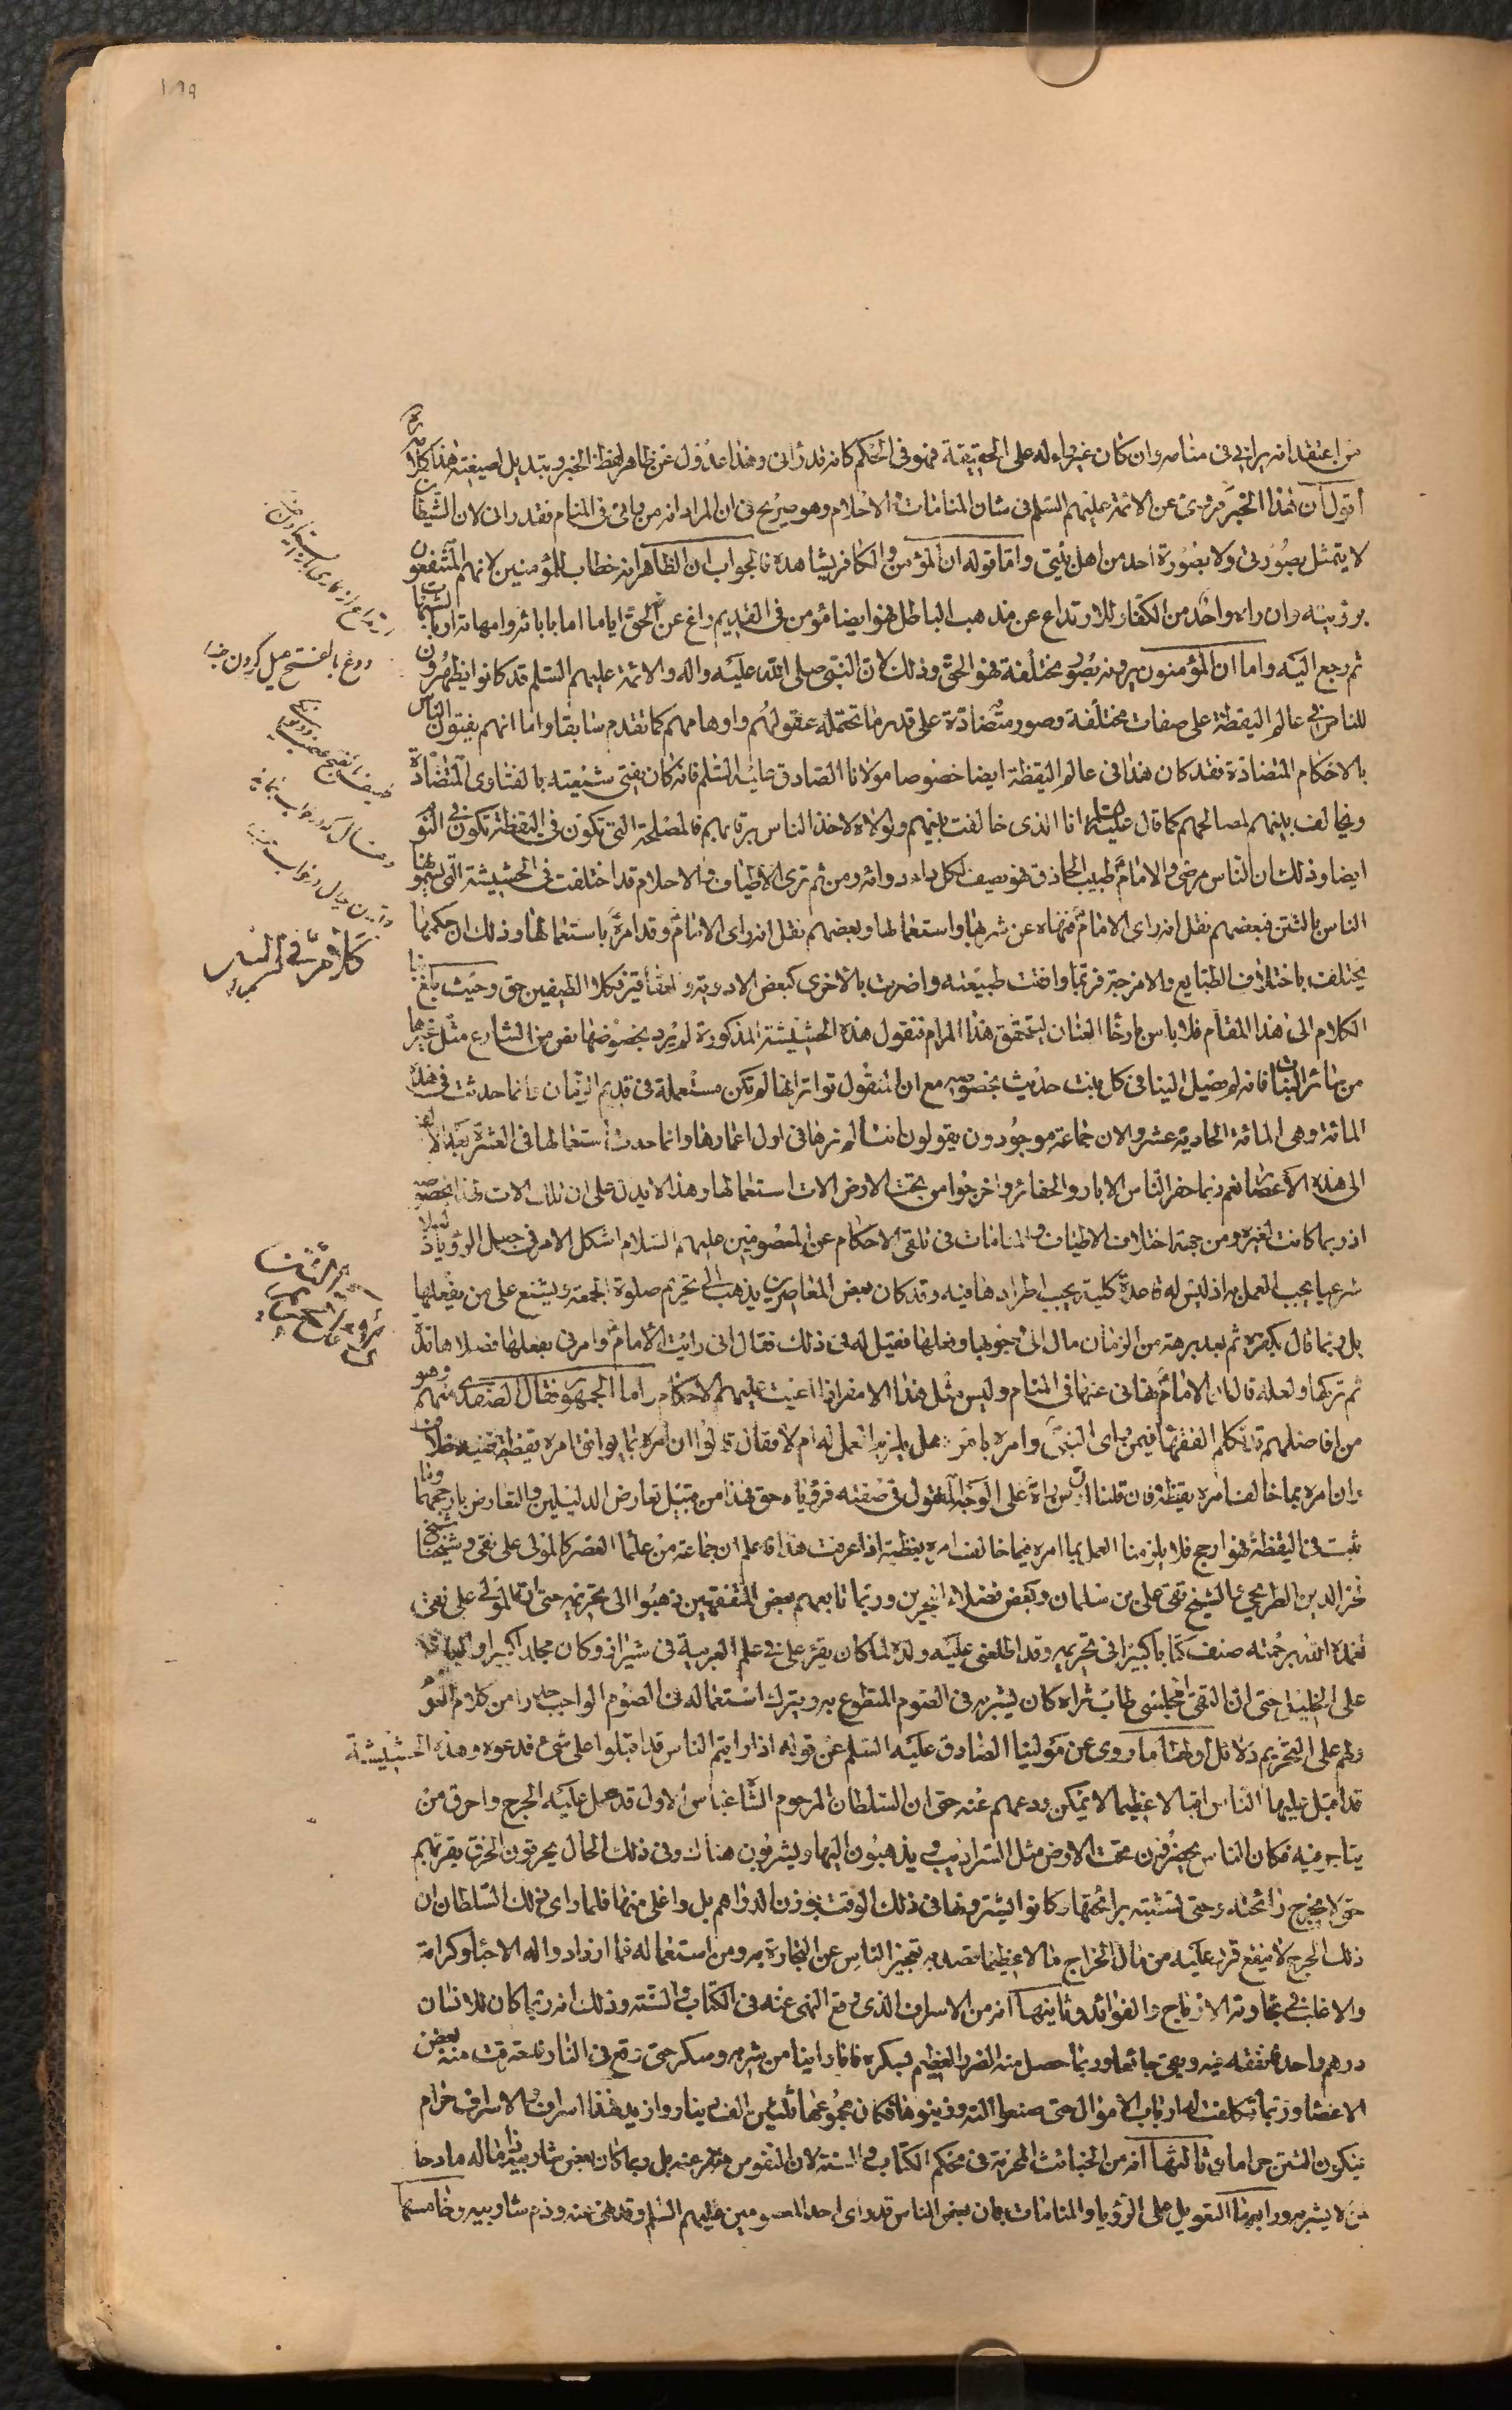 ١٨٩
من اعتقد انه يراني في منامه وان كان غير راء له على الحقيقة فهو في الحكم كانه قد رآني وهذا عدول عن ظاهر لفظ الخبر وتبديل لصيغته هذا كلامه
اقول ان هذا الخبر مروى عن الائمة عليهم السلم في شان المنامات والاحلام وهو صريح في ان المراد انه من راني في المنام فقد راني لان الشيطان
لا يتمثل بصورتي ولا بصورة احد من اهل بيتي واما قوله ان المؤمن والكافر يشاهده فالجواب ان الظاهر انه خطاب للمؤمنين لانهم المنتفعون
برؤيته وان راه واحد من الكفار للارتداع عن مذهب الباطل فهو ايضا مؤمن في القديم راغ عن الحق اياما اما باباثه وامهاته او بالشبهات
ثم رجع اليه واما ان المؤمنون يرونه بصور مختلفة فهو الحق وذلك لان النبي صلى الله عليه واله والائمة عليهم السلم قد كانوا يظهرون
للناس في عالم اليقظة على صفات مختلفة وصور متضادة على قدر ما تحتمله عقولهم واوهامهم كما تقدم سابقا واما انهم يفتون الناس
بالاحكام المتضادة فقد كان هذا في عالم اليقظة ايضا خصوصا مولانا الصادق عليه السلم فانه كان يفتى شيعته بالفتاوى المتضادة
ويخالف بينهم لمصالحهم كما قال عليه السلم انا الذى خالفت بينهم ولولاه لاخذ الناس برقابهم فالمصلحة التي تكون في اليقظة تكون في النوم
ايضا وذلك ان الناس مرضى والامام طبيب الحاذق فهو يصف لكل داء دوائه ومن ثم ترى الاطياف والاحلام قد اختلفت في الحشيشة التي يسموها
الناس بالتتن فبعضهم نقل انه راى الامام فنهاه عن شربها واستعمالها وبعضهم نقل انه راى الامام وقد امره باستعمالها وذلك ان حكمها
يختلف باختلاف الطبايع والامزجة فربما وافقت طبيعته واضرت بالاخرى كبعض الادوية والعقاقير فكلا الطيفين حق وحيث بلغ بنا
الكلام الى هذا المقام فلا باس بارخاء العنان لتحقق هذا المرام فنقول هذه الحشيشة المذكورة لم يرد بخصوصها نص من الشارع مثل غيرها
من سائر النباتات فانه لم يصل الينا في كل نبت حديث بخصوصه مع ان المنقول تواترا انها لم تكن مستعملة في قديم الزمان وانما حدثت في هذه
المائة وهى المائة الحادية عشر والان جماعة موجودون يقولون اننا لم نرها في اول اعمارها وانما حدث استعمالها في العشرة بعد الالف
الى هذه الاعصار نعم ربما حفر الناس الابار والحفائر واخرجوا من تحت الارض الات استعمالها وهذا لا يدل على ان تلك الالات لهذا بخصوصه
اذ ربما كانت لغيره ومن جهة اختلاف الاطياف والمنامات في تلقى الاحكام عن المعصومين عليهم السلام اشكل الامر في جعل الرؤيا دليلا
شرعيا يجب العمل به اذ ليس له قاعدة كلية يجب اطرادها فيه وقد كان بعض المعاصرين يذهب الى تحريم صلوة الجمعة ويشنع على من يفعلها
بل ربما قال بكفره ثم بعد برهة من الزمان مال الى وجوبها وفعلها فقيل له في ذلك فقال اني رايت الامام وامرني بفعلها فصلاها مدة
ثم تركها ولعله قال ان الامام نهاني عنها في المنام وليس مثل هذا الامر اذا اعنيت عليهم الاحكام واما الجمهور فقال الصفدى منهم وهو
من افاضلهم تكلم الفقهاء فيمن راى النبي وامره بامر هل يلزمه العمل به ام لا فقال قالوا ان امره بما يوافق امره يقظة ففيه خلاف
وان امره بما خالف امره يقظة فان قلنا ان من راه على الوجه المنقول في صفته فرؤياه حق فهذا من قبيل تعارض الدليلين والتعارض بارجحهما وما
ثبت في اليقظة فهو ارجح فلا يلزمنا العمل بما امره فيما خالف امره يقظة اذا عرفت هذا فاعلم ان جماعة من علماء العصر كالمولى على نقى وشيخنا الشيخ
فخر الدين الطريحى والشيخ تقى على بن سلمان وبعض فضلاء البحرين وربما تابعهم بعض المتفقهين ذهبوا الى تحريمه حتى ان المولى على نقى
تغمده الله برحمته صنف كتابا كبيرا في تحريمه وقد اطلعنى عليه ولده لما كان يقرء على في علم العربية في شيراز وكان مجلدا كبيرا
حتى ان التقى المجلسى طاب ثراه كان يشربه في الصوم المتطوع به ويترك استعماله في الصوم الواجب حذرا من كلام العوام
ولهم على التحريم دلائل اولها ما روى عن مولينا الصادق عليه السلم عن قوله اذا رايتم الناس قد اقبلوا على شئ فدعوه وهذه الحشيشة
قد اقبل عليها الناس اقبالا عظيما لا يمكن ردعهم عنه حتى ان السلطان المرحوم الشاه عباس الاول قد جعل عليه الجرح واحرق من
يتاجر فيه فكان الناس يحفرون تحت الارض مثل السراديب ويذهبون اليها ويشربون هناك وفى ذلك الحال يحرقون الخرق بقربهم
حتى لا يخرج رائحته وحتى تشتبه برائحتها وكانوا يشترونها في ذلك الوقت بوزن الدراهم بل واغلى منها فلما راى ذلك السلطان ان
ذلك الجرح لا ينفع قرر عليه من مال الخراج مالا عظيما قصد به تعجيز الناس عن التجارة به ومن استعماله فما ازدادوا له الا حبا وكرامة
والاغلب في تجارته الارباح والفوائد وثانيها انه من الاسراف الذى وقع النهى عنه في الكتاب والسنة وذلك انه ربما كان للانسان
درهم واحد فينفقه فيه ويبقى جائعا وربما حصل منه الضرر العظيم بسكره فانا راينا من شربه وسكر حتى وقع في النار فاحترقت منه بعض
الاعضاء وربما تكلفت لها ارباب الاموال حتى صنعوا الته وزينوها فكان مجموعها ثلثين الف دينار وازيد فهذا اسراف والاسراف حرام
فيكون التتن حراما وثالثها انه من الخبائث المحرمة في محكم الكتاب والسنة لان النفوس متنفر عنه بل وبما كان بعض شاربيه ذاما له مادحا
من لا يشربه ورابعها التعويل على الرؤيا والمنامات بان بعض الناس قد راى احد المعصومين عليهم السلم وقد نهى عنه وذم شاربيه وخامسها
روغ بالفتح ميل كردن
كلام في التتن